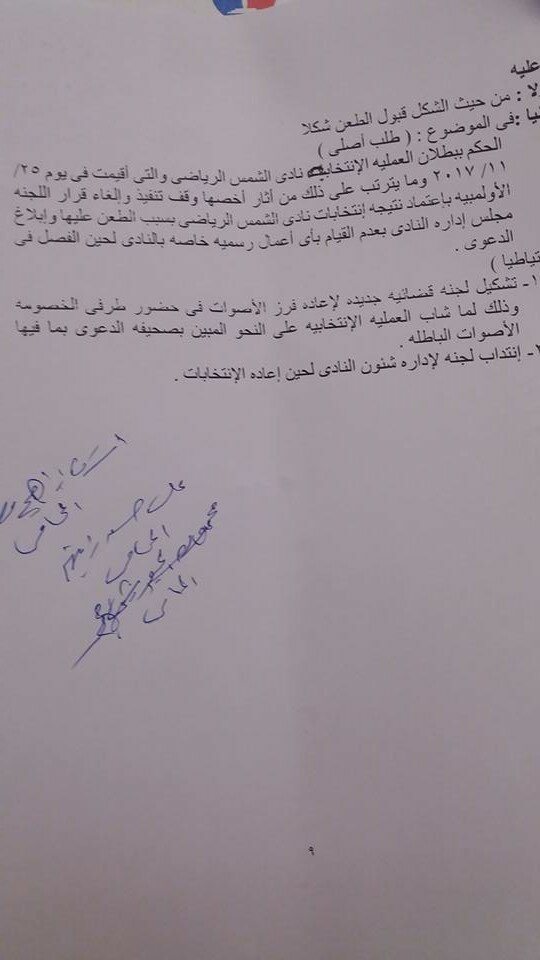 عليه
: من حيث الشكل قبول الطعن شكلا
: فى الموضوع : ( طلب أصلى )
الحكم ببطلان العمليه الإنتخابيه نادى الشمس الرياضى والتى أقيمت فى يوم ٢٥/
٢٠١٧/١١ وما يترتب على ذلك من أثار أخصها وقف تنفيذ وإلغاء قرار اللجنه
الأولمبيه بإعتماد نتيجه إنتخابات نادى الشمس الرياضى بسبب الطعن عليها وإبلاغ
مجلس إداره النادى بعدم القيام بأى أعمال رسميه خاصه بالنادى لحين الفصل فى
الدعوى .
تياطيا )
١- تشكيل لجنه قضائيه جديده لإعاده فرز الأصوات فى حضور طرفى الخصومه
وذلك لما شاب العمليه الإنتخابيه على النحو المبين بصحيفه الدعوى بما فيها
الأصوات الباطله .
- إنتداب لجنه لإداره شئون النادى لحين إعاده الإنتخابات .
المحامى
على
المحامى
المحامى
٩